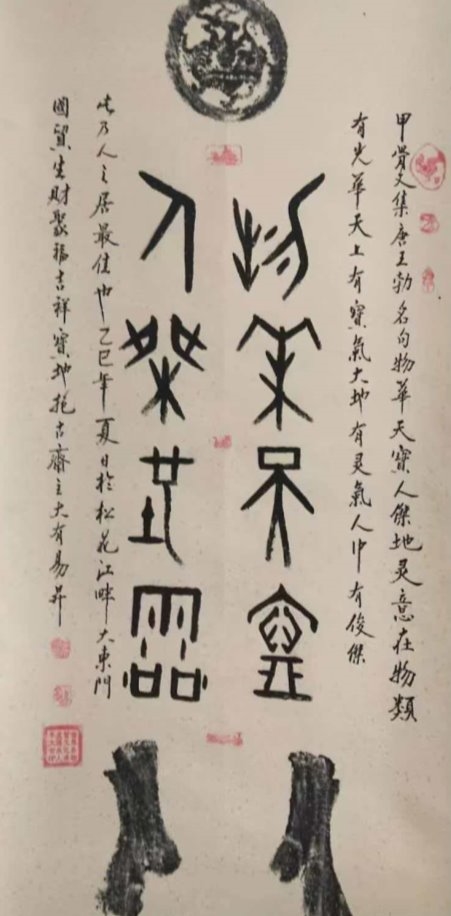 甲骨文集唐王勃名句物華天寳人傑地灵意在物類
有光華天上有寳氣大地有灵氣人中有俊傑
物華天寳
人傑地靈
此乃人之居最佳也乙巳年夏日於松花江畔大東門
國貿生財聚福吉祥寳地抱古齋主大有易昇